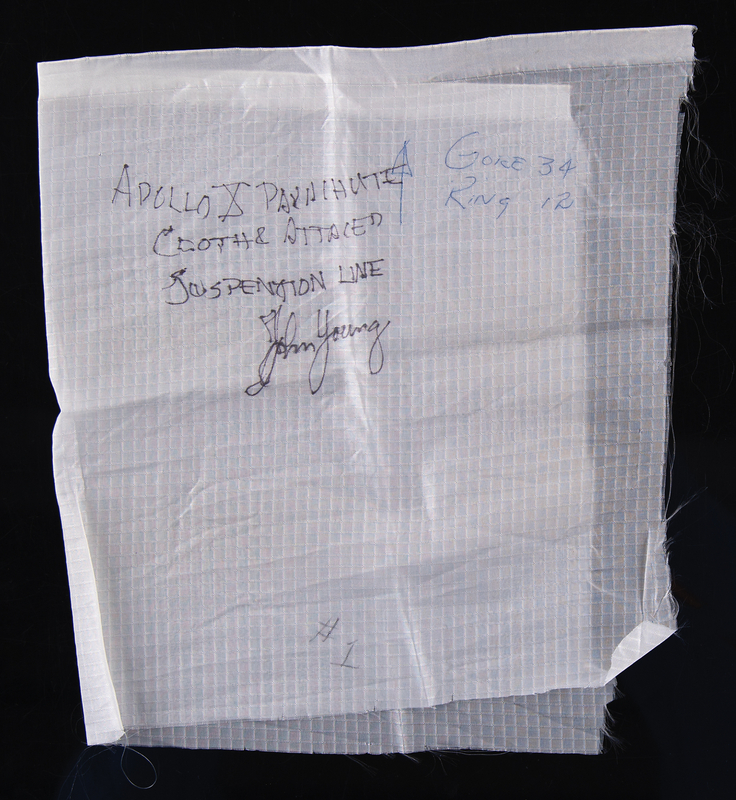 APOLLO X PARACHUTE
CLOTH & ATTACED
SUSPENTION LINE
John Young
GORE 34
RING 12
# 1